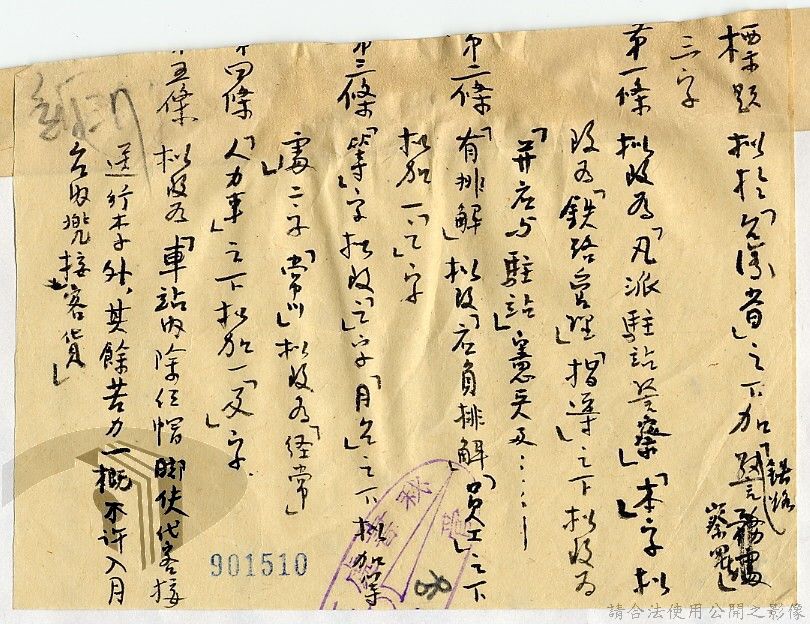 標題 擬於「台灣省」之下加「警務處鐵路警察
三字
第一條 擬改為「凡派駐站警察」「本」字擬
改為「鉄路管理」「指導」之下擬改為
「并应与駐站憲兵及……」
第二條 「有排解」擬改「应負排解」「員工」之下
擬加一「之」字
第三條 「等」字擬改「之」字「月台」之下擬加等
處二字「常川」擬改為「経常」
第四條 「人力車」之下擬加一「及」字
第五條 擬改為「車站內除紅帽脚伕代客接
送行李外，其餘苦力一概不许入月
台內兜接客貨」
901510
請合法使用公開之影像